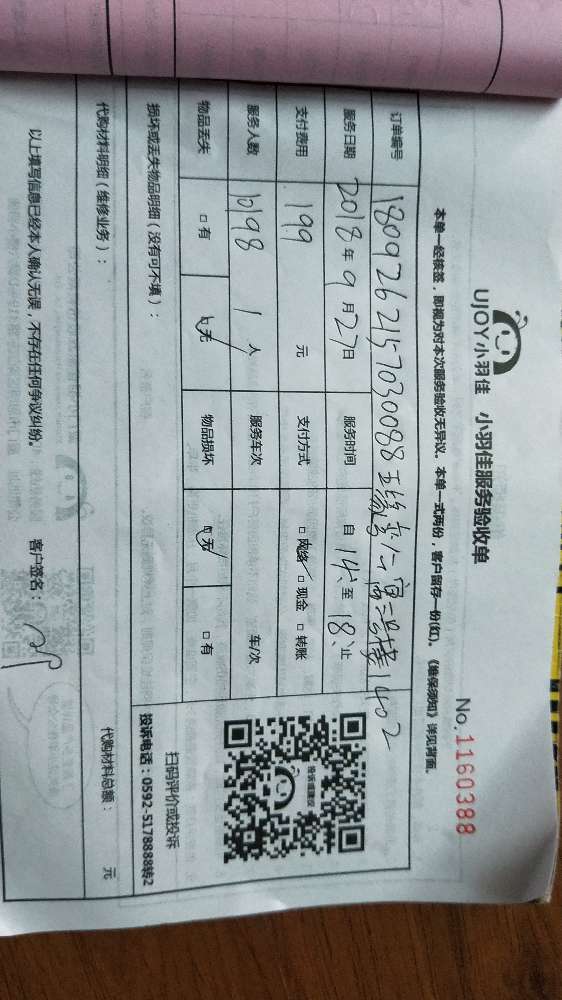 UJOY小羽佳 小羽佳服务验收单
No. 1160388
本单一经核签，即视为对本次服务验收无异议。本单一式两份，客户留存一份(红)。《维保须知》详见背面。
订单编号 180926215703008８ 二富三号楼1402
服务日期 2018年9月27日 服务时间 自14:至18:止
支付费用 199 元 支付方式 □网络 □现金 □转账
服务人数 10198 1人 服务车次 车/次
物品丢失 □有 □无 物品损坏 □无 □有
投诉或建议
扫码评价或投诉
投诉电话：0592-5178888转2
损坏或丢失物品明细（没有可不填）：
代购材料明细（维修业务）： 代购材料总额： 元
以上填写信息已经本人确认无误，不存在任何争议纠纷。 客户签名：